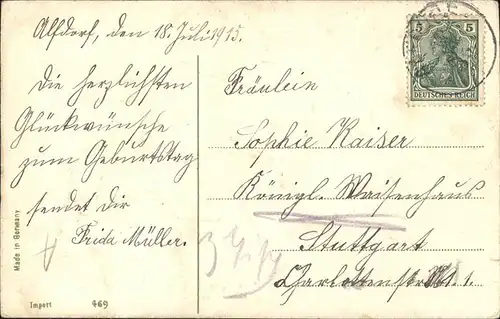 Alfdorf, den 18. Juli 1915.
Die herzlichsten
Glückwünsche
zum Geburtstag
sendet dir
Frida Müller.
5 5
DEUTSCHES REICH
Fräulein
Sophie Kaiser
Königl. Waisenhaus
Stuttgart
Charlottenstr.
Made in Germany
Import 469